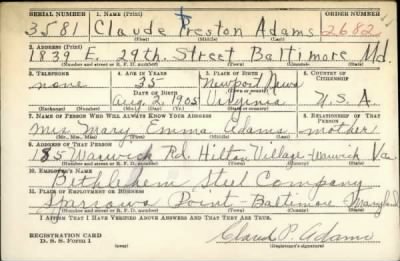 SERIAL NUMBER 1. NAME (Print) ORDER NUMBER
3581 Claude Preston Adams 2682
(First) (Middle) (Last)
2. ADDRESS (Print)
1839 E. 29th. Street Baltimore Md.
(Number and street or R. F. D. number) (Town) (County) (State)
3. TELEPHONE 4. AGE IN YEARS 5. PLACE OF BIRTH 6. COUNTRY OF CITIZENSHIP
none 35 Newport News
DATE OF BIRTH
Aug 2, 1905 Virginia U.S.A.
(Exchange) (Number) (Mo.) (Day) (Yr.) (State or country)
7. NAME OF PERSON WHO WILL ALWAYS KNOW YOUR ADDRESS 8. RELATIONSHIP OF THAT PERSON
Mrs Mary Emma Adams mother
(Mr., Mrs., Miss) (First) (Middle) (Last)
9. ADDRESS OF THAT PERSON
185 Warwick Rd. Hilton Village Warwick Va.
(Number and street or R. F. D. number) (Town) (County) (State)
10. EMPLOYER'S NAME
Bethlehem Steel Company
11. PLACE OF EMPLOYMENT OR BUSINESS
Sparrows Point - Baltimore Maryland
(Number and street or R. F. D. number) (Town) (County) (State)
I AFFIRM THAT I HAVE VERIFIED ABOVE ANSWERS AND THAT THEY ARE TRUE.
REGISTRATION CARD
D. S. S. Form 1 Claude P. Adams
(Registrant's signature)